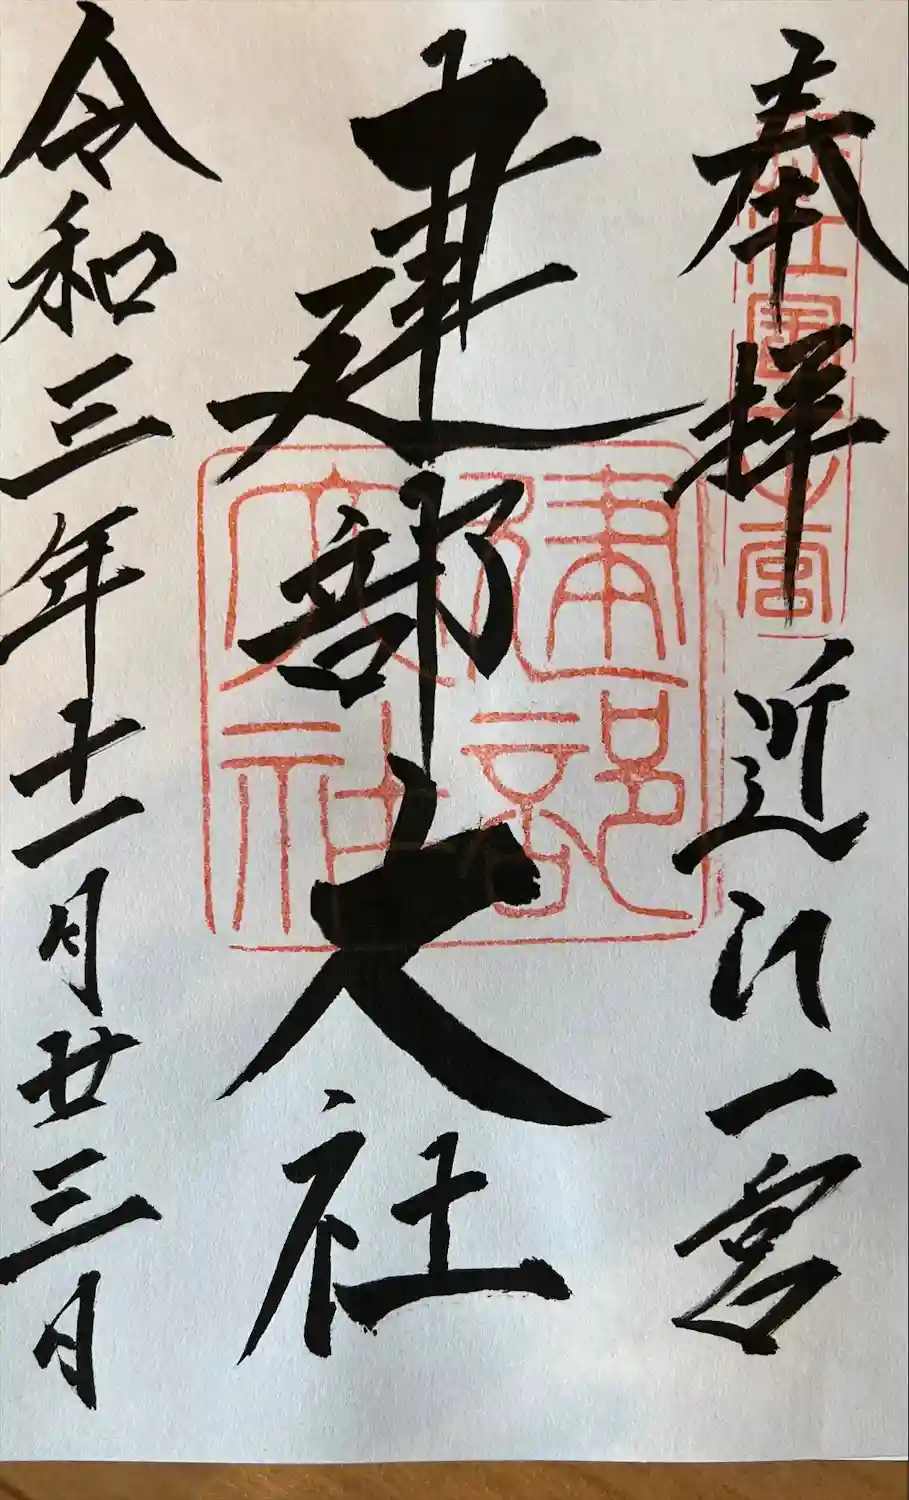 奉拝
近江一宮
建部大社
令和三年十一月廿三日
近江国一之宮
建部大社